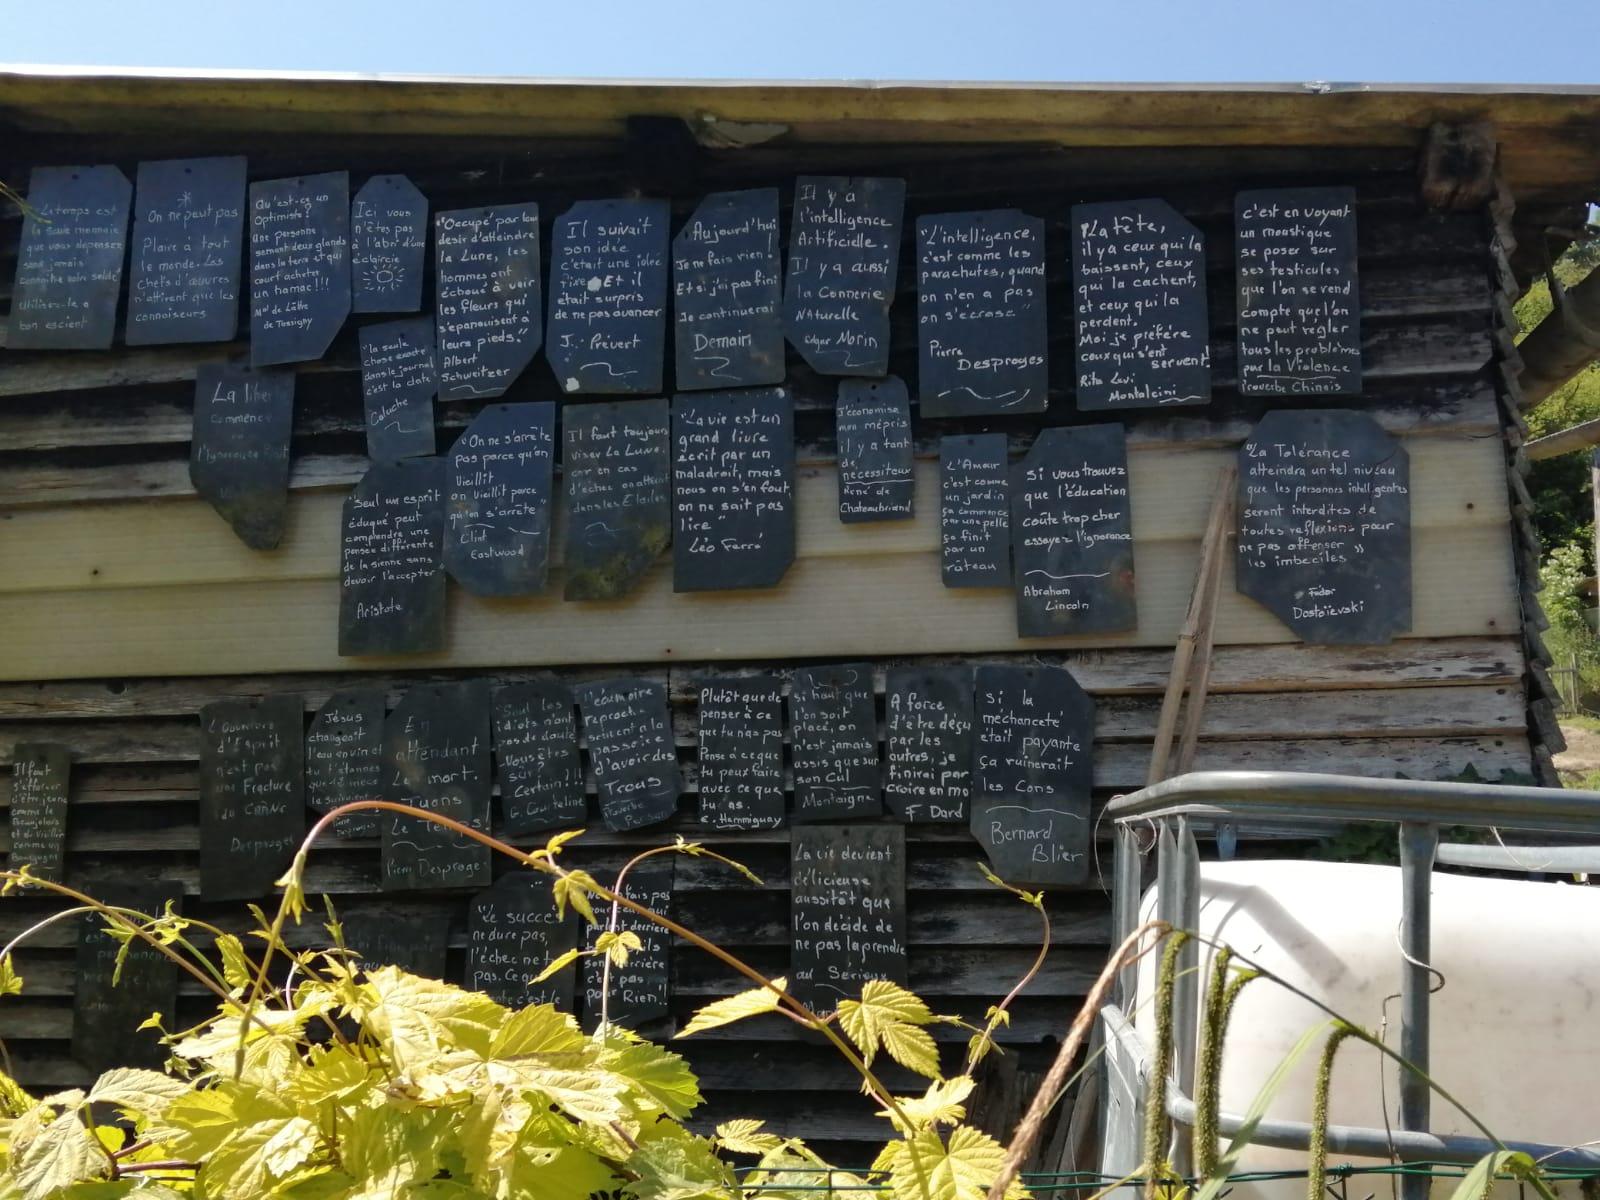 Le temps est
la seule monnaie
que vous dépensez
sans jamais
connaître votre solde
Utilisez-le a
bon escient
On ne peut pas
Plaire à tout
le monde. Les
chefs d'œuvres
n'attirent que les
connoiseurs
Qu'est-ce un
Optimiste?
une personne
semant deux glands
dans la terre et qui
court acheter
un hamac!!!
Mal de Lattre
de Tassigny
Ici vous
n'êtes pas
à l'abri d'une
éclaircie
"Occupé par leur
desir d'atteindre
la Lune, les
hommes ont
échoué à voir
les fleurs qui
s'épanouisent à
leurs pieds."
Albert
Schweitzer
Il suivait
son idée
c'était une idée
fixe Et il
était surpris
de ne pas avancer
J. Prévert
Aujourd'hui
Je ne fais rien!
Et si j'ai pas fini
Je continuerai
Demain
Il y a
l'intelligence
Artificielle.
Il y a aussi
la Connerie
NAturelle
Edgar Morin
"L'intelligence,
c'est comme les
parachutes, quand
on n'en a pas
on s'écrase"
Pierre
Desproges
"La tête,
il y a ceux qui la
baissent, ceux
qui la cachent,
et ceux qui la
perdent.
Moi je préfére
ceux qui s'ent
servent!
Rita Levi
Montalcini
c'est en voyant
un moustique
se poser sur
ses testicules
que l'on se rend
compte que l'on
ne peut régler
tous les problèmes
par la Violence
Proverbe Chinois
"la seule
chose exacte
dans le journal
c'est la date"
Coluche
La liber
Commence
où
l'Ignorance Finit
"Seul un esprit
éduqué peut
comprendre une
pensée différente
de la sienne sans
devoir l'accepter"
Aristote
"On ne s'arrête
pas parce qu'on
Vieillit
on Vieillit parce
qu'on s'arrête"
Clint
Eastwood
Il faut toujours
viser La Lune.
car en cas
d'échec on atterit
dans les Etoiles
"La vie est un
grand livre
écrit par un
maladroit, mais
nous on s'en fout,
on ne sait pas
lire"
Léo Ferré
J'économise
mon mépris
il y a tant
de
necessiteux
René de
Chateaubriand
L'Amour
c'est comme
un jardin
ça commence
par une pelle
ça finit
par un
râteau
Si vous trouvez
que l'éducation
coûte trop cher
essayez l'ignorance
Abraham
Lincoln
"La Tolérance
atteindra un tel niveau
que les personnes intelligentes
seront interdites de
toutes reflexions pour
ne pas offenser
les imbeciles"
Fedor
Dostoïevski
Il faut
s'efforcer
d'être jeune
comme le
Beaujolais
et de vieillir
comme un
Bourgogne
L'Ouverture
d'Esprit
n'est pas
une Fracture
du CRÂNE
Desproges
Jésus
changeait
l'eau en vin et
tu t'étonnes
que 12 mecs
le suivaient
Pierre
Desproges
En
attendant
La mort.
Tuons
Le Temps!
Pierre Desproges
"Seul les
idiots n'ont
pas de doute
-Vous êtes
sûr?
Certain!!!
G. Courteline
L'écumoire
reproche
souvent a la
passoire
d'avoir des
Trous
Proverbe
Persan
Plutôt que de
penser à ce
que tu n'as pas
Pense à ce que
tu peux faire
avec ce que
tu as.
E. Hemmiguay
Si haut que
l'on soit
placé, on
n'est jamais
assis que sur
son Cul
Montaigne
A force
d'être déçu
par les
autres, je
finirai par
croire en moi
F. Dard
Si la
méchanceté
était payante
ça ruinerait
les Cons
Bernard
Blier
est
permanente
"Le succès
ne dure pas,
l'échec ne t
pas. Ce qu
c'est le
fais pas
pour ceux qui
parlent derrière
ils
sont derrière
c'est pas
pour Rien!!
La vie devient
délicieuse
aussitôt que
l'on décide de
ne pas la prendre
au Sérieux